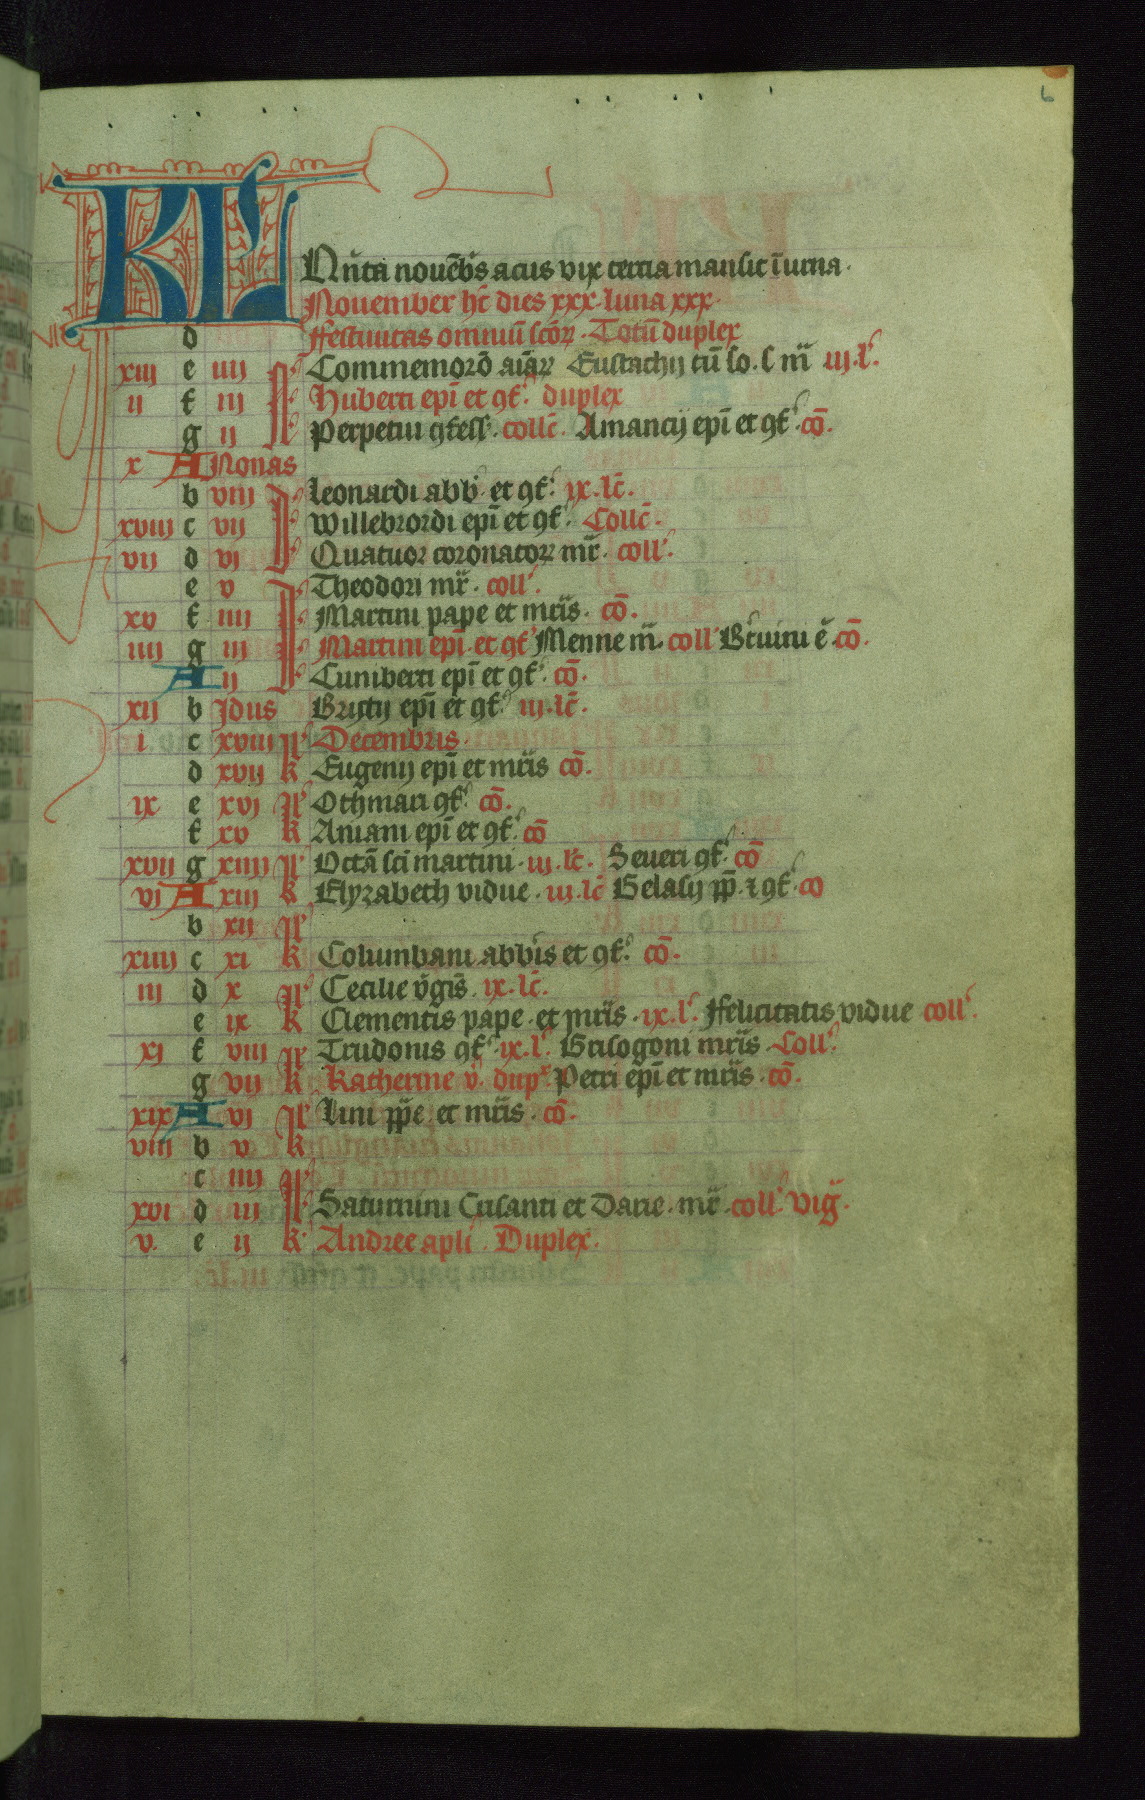 6
KL
Qn̄ta nouēb's acus vix tercia mansit ī urna.
Nouember hc̄ dies xxx. luna xxx.
d ffestiuitas omniū scōꝝ. Totū duplex
xiii e iiij N' Commemorō aīaꝝ Eustachij cū so. s m̄r iij.l'.
ij f iij Huberti ep̄i et ꝯf'. duplex
g ij Perpetui ꝯfess'. collc̄. Amancij ep̄i et ꝯf'. cō.
x A Nonas
b viij Leonardi abb' et ꝯf'. ix.lc̄.
xviii c vij Willebrordi ep̄i et ꝯf'. Collc̄.
vij d vj Quatuor coronatoꝝ mr̄. coll'.
e v Theodori mr̄. coll'.
xv f iiij Martini pape et mr̄is. cō.
iiij g iij Martini ep̄i. et ꝯf' Menne m̄. coll' Bruini ē. cō.
A ij Cuniberti ep̄i et ꝯf'. cō.
xij b Jdus Brixij ep̄i et ꝯf' iij.lc̄.
i c xviij kl' Decembris.
d xvij k Eugenij ep̄i et mr̄is cō.
ix e xvj kl' Othmari ꝯf'. cō.
f xv k Aniani ep̄i et ꝯf'. cō
xvij g xiiij kl' Octā sc̄i martini. iij.lc̄. Seueri ꝯf'. cō
vj A xiij k Elyzabeth vidue. iij.lc̄ Gelasij pp̄. ⁊ ꝯf'. co
b xij kl'
xiiij c xi k Columbani abb'is et ꝯf'. cō.
iij d x kl' Cecilie v̄gīs. ix.lc̄.
e ix k Clementis pape. et mr̄is. ix.l'. ffelicitatis vidue coll'.
xj f viij kl' Trudonis ꝯf'. ix.l'. Grisogoni mr̄is. Coll'.
g vij k Katherine v̄. dup' Petri ep̄i et mr̄is. cō.
xix A vj kl' Lini pp̄e et mr̄is. cō.
viij b v k
c iiij kl'
xvi d iij kl' Saturnini Crisanti et Darie. mr̄. coll'. Vig̃.
v. e ij k' Andree apl̄i. Duplex.